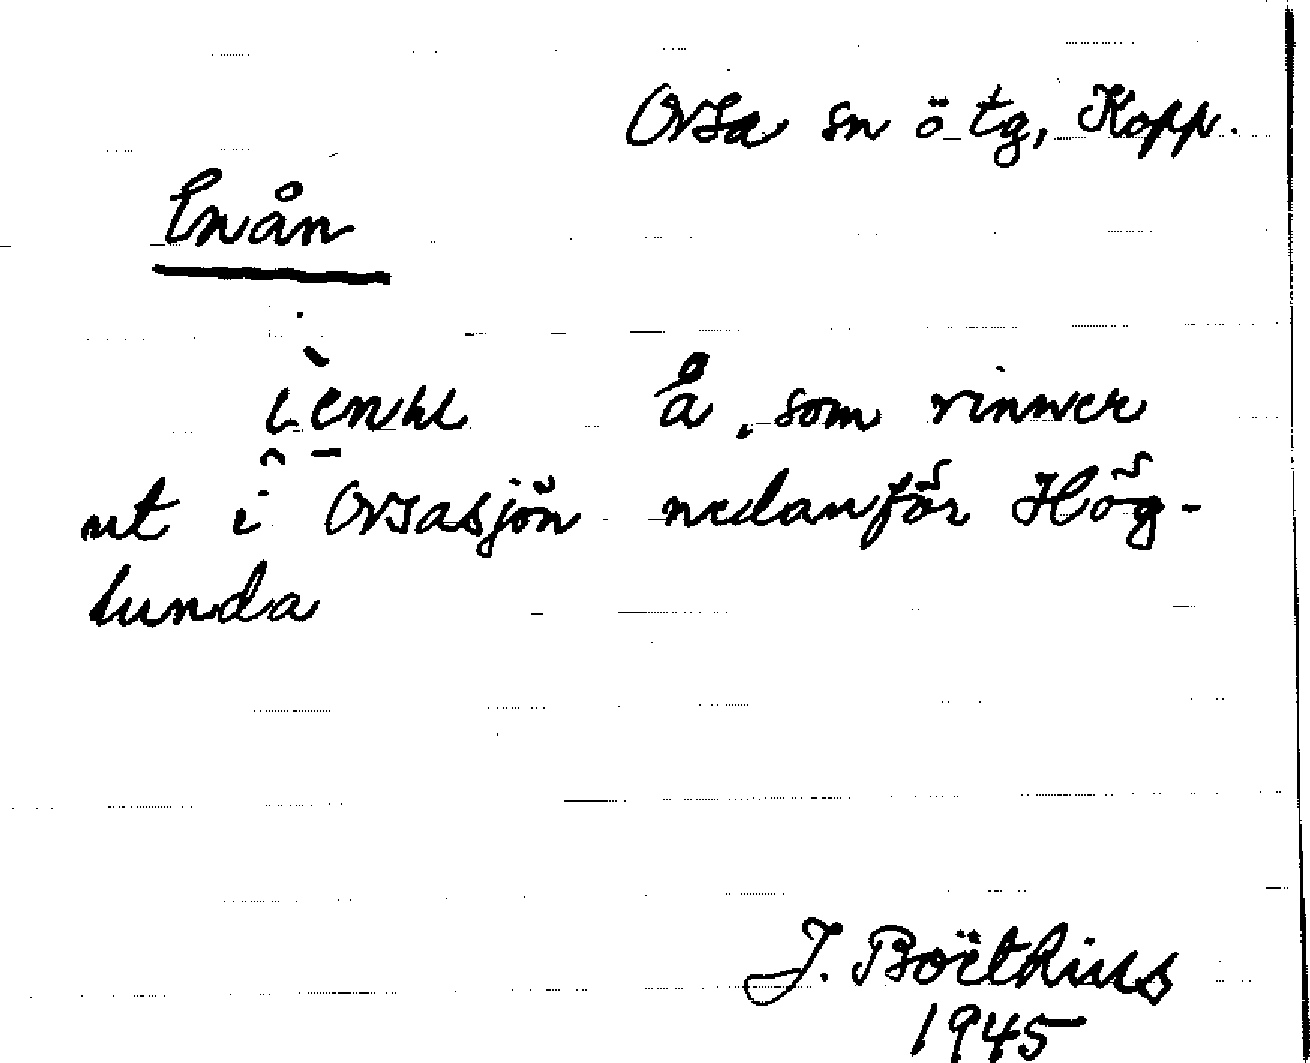 Orsa sn ö tg, Kopp.
Enån
å, som rinner
ut i Orsasjön nedanför Hög-
lunda
J. Boëthius
1945